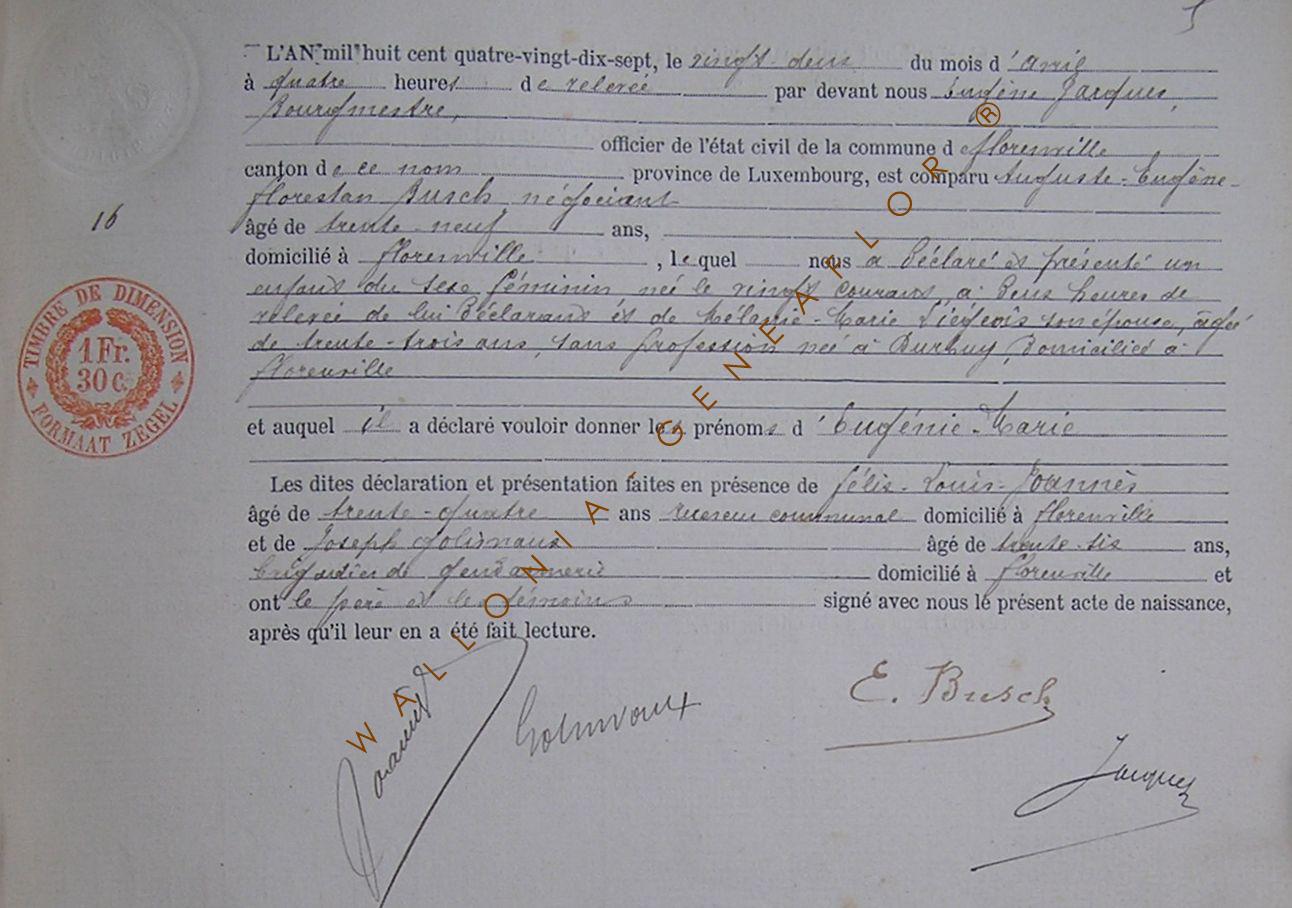 5
L'AN mil huit cent quatre-vingt-dix-sept, le vingt-deux du mois d'avril
à quatre heures de relevée par devant nous Eugène Jacques,
Bourgmestre,
officier de l'état civil de la commune de Florenville
canton de ce nom province de Luxembourg, est comparu Auguste-Eugène-
Florestan Busch négociant
16
âgé de trente-neuf ans,
domicilié à Florenville, lequel nous a déclaré et présenté un
enfant du sexe féminin née le vingt courant, à deux heures de
relevée de lui déclarant et de Mélanie-Marie Liégeois son épouse, âgée
de trente-trois ans, sans profession née à Durbuy, domiciliée à
Florenville
et auquel il a déclaré vouloir donner les prénoms d'Eugénie-Marie
Les dites déclaration et présentation faites en présence de Félix-Louis-Joannès
âgé de trente-quatre ans receveur communal domicilié à Florenville
et de Joseph Golinvaux âgé de trente-six ans,
brigadier de gendarmerie domicilié à Florenville et
ont le père et les témoins signé avec nous le présent acte de naissance,
après qu'il leur en a été fait lecture.
Joannès
Golinvaux
E. Busch
Jacques
TIMBRE DE DIMENSION
1 Fr.
30 C.
FORMAAT ZEGEL
WALLONIA-GENEAFLOR®